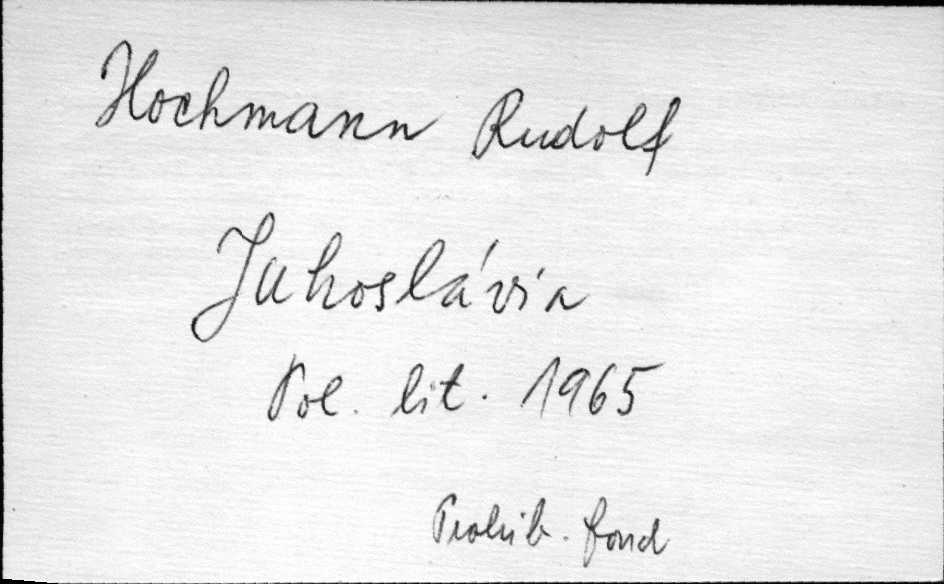 Hochmann Rudolf
Juhoslávia
Pol. lit. 1965
Prohib. fond